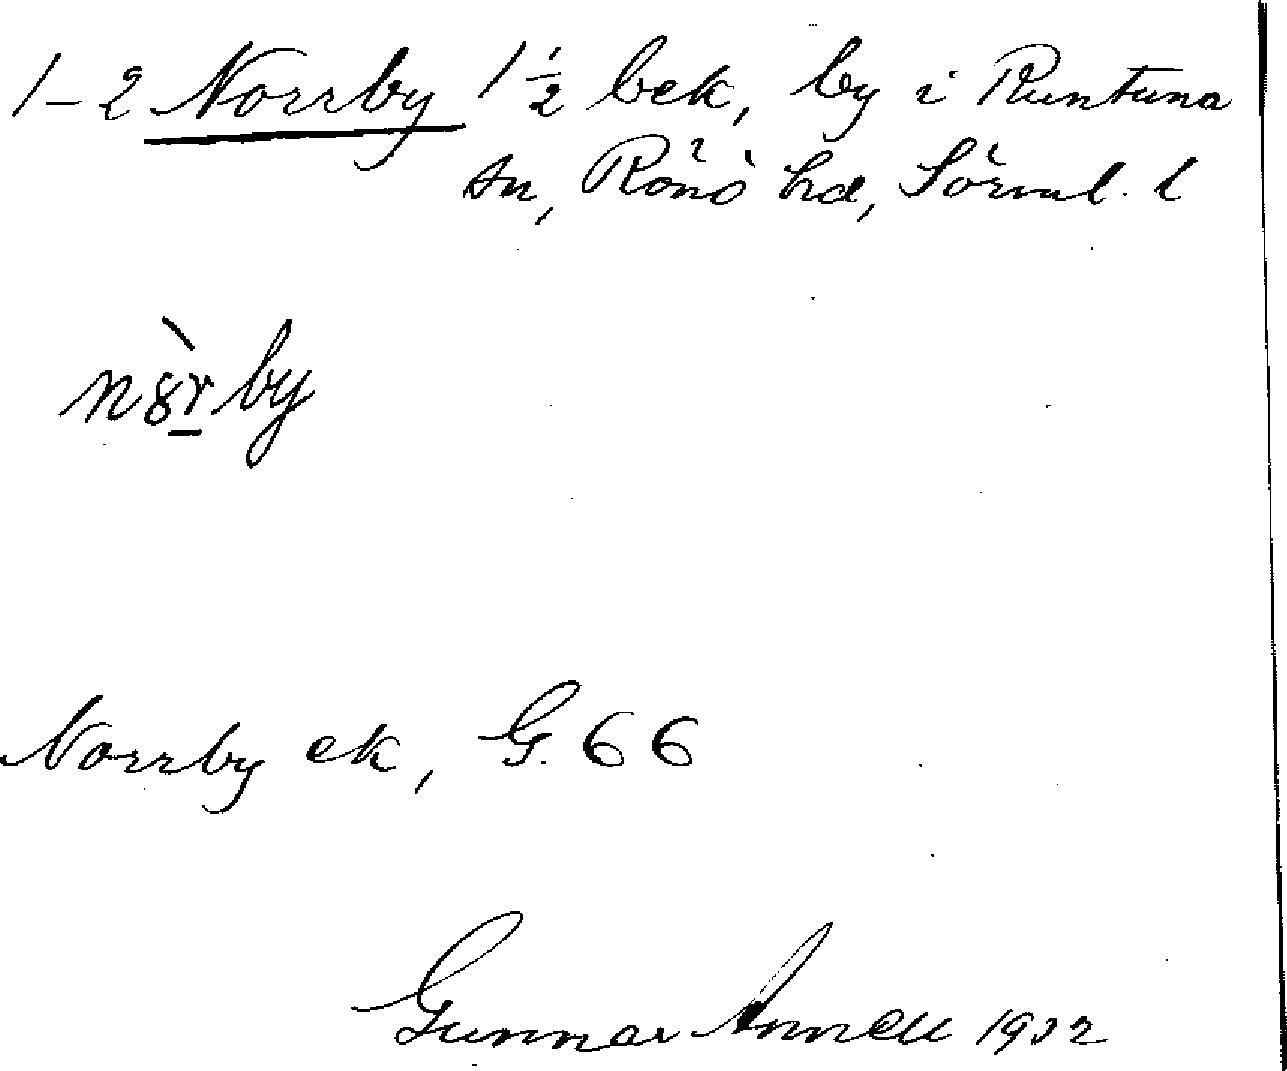 1-2 Norrby 1½ bek, by i Runtuna
sn, Rönö hd, Sörml. l
n8̀r̲by
Norrby ek, G. 66
Gunnar Annell 1932